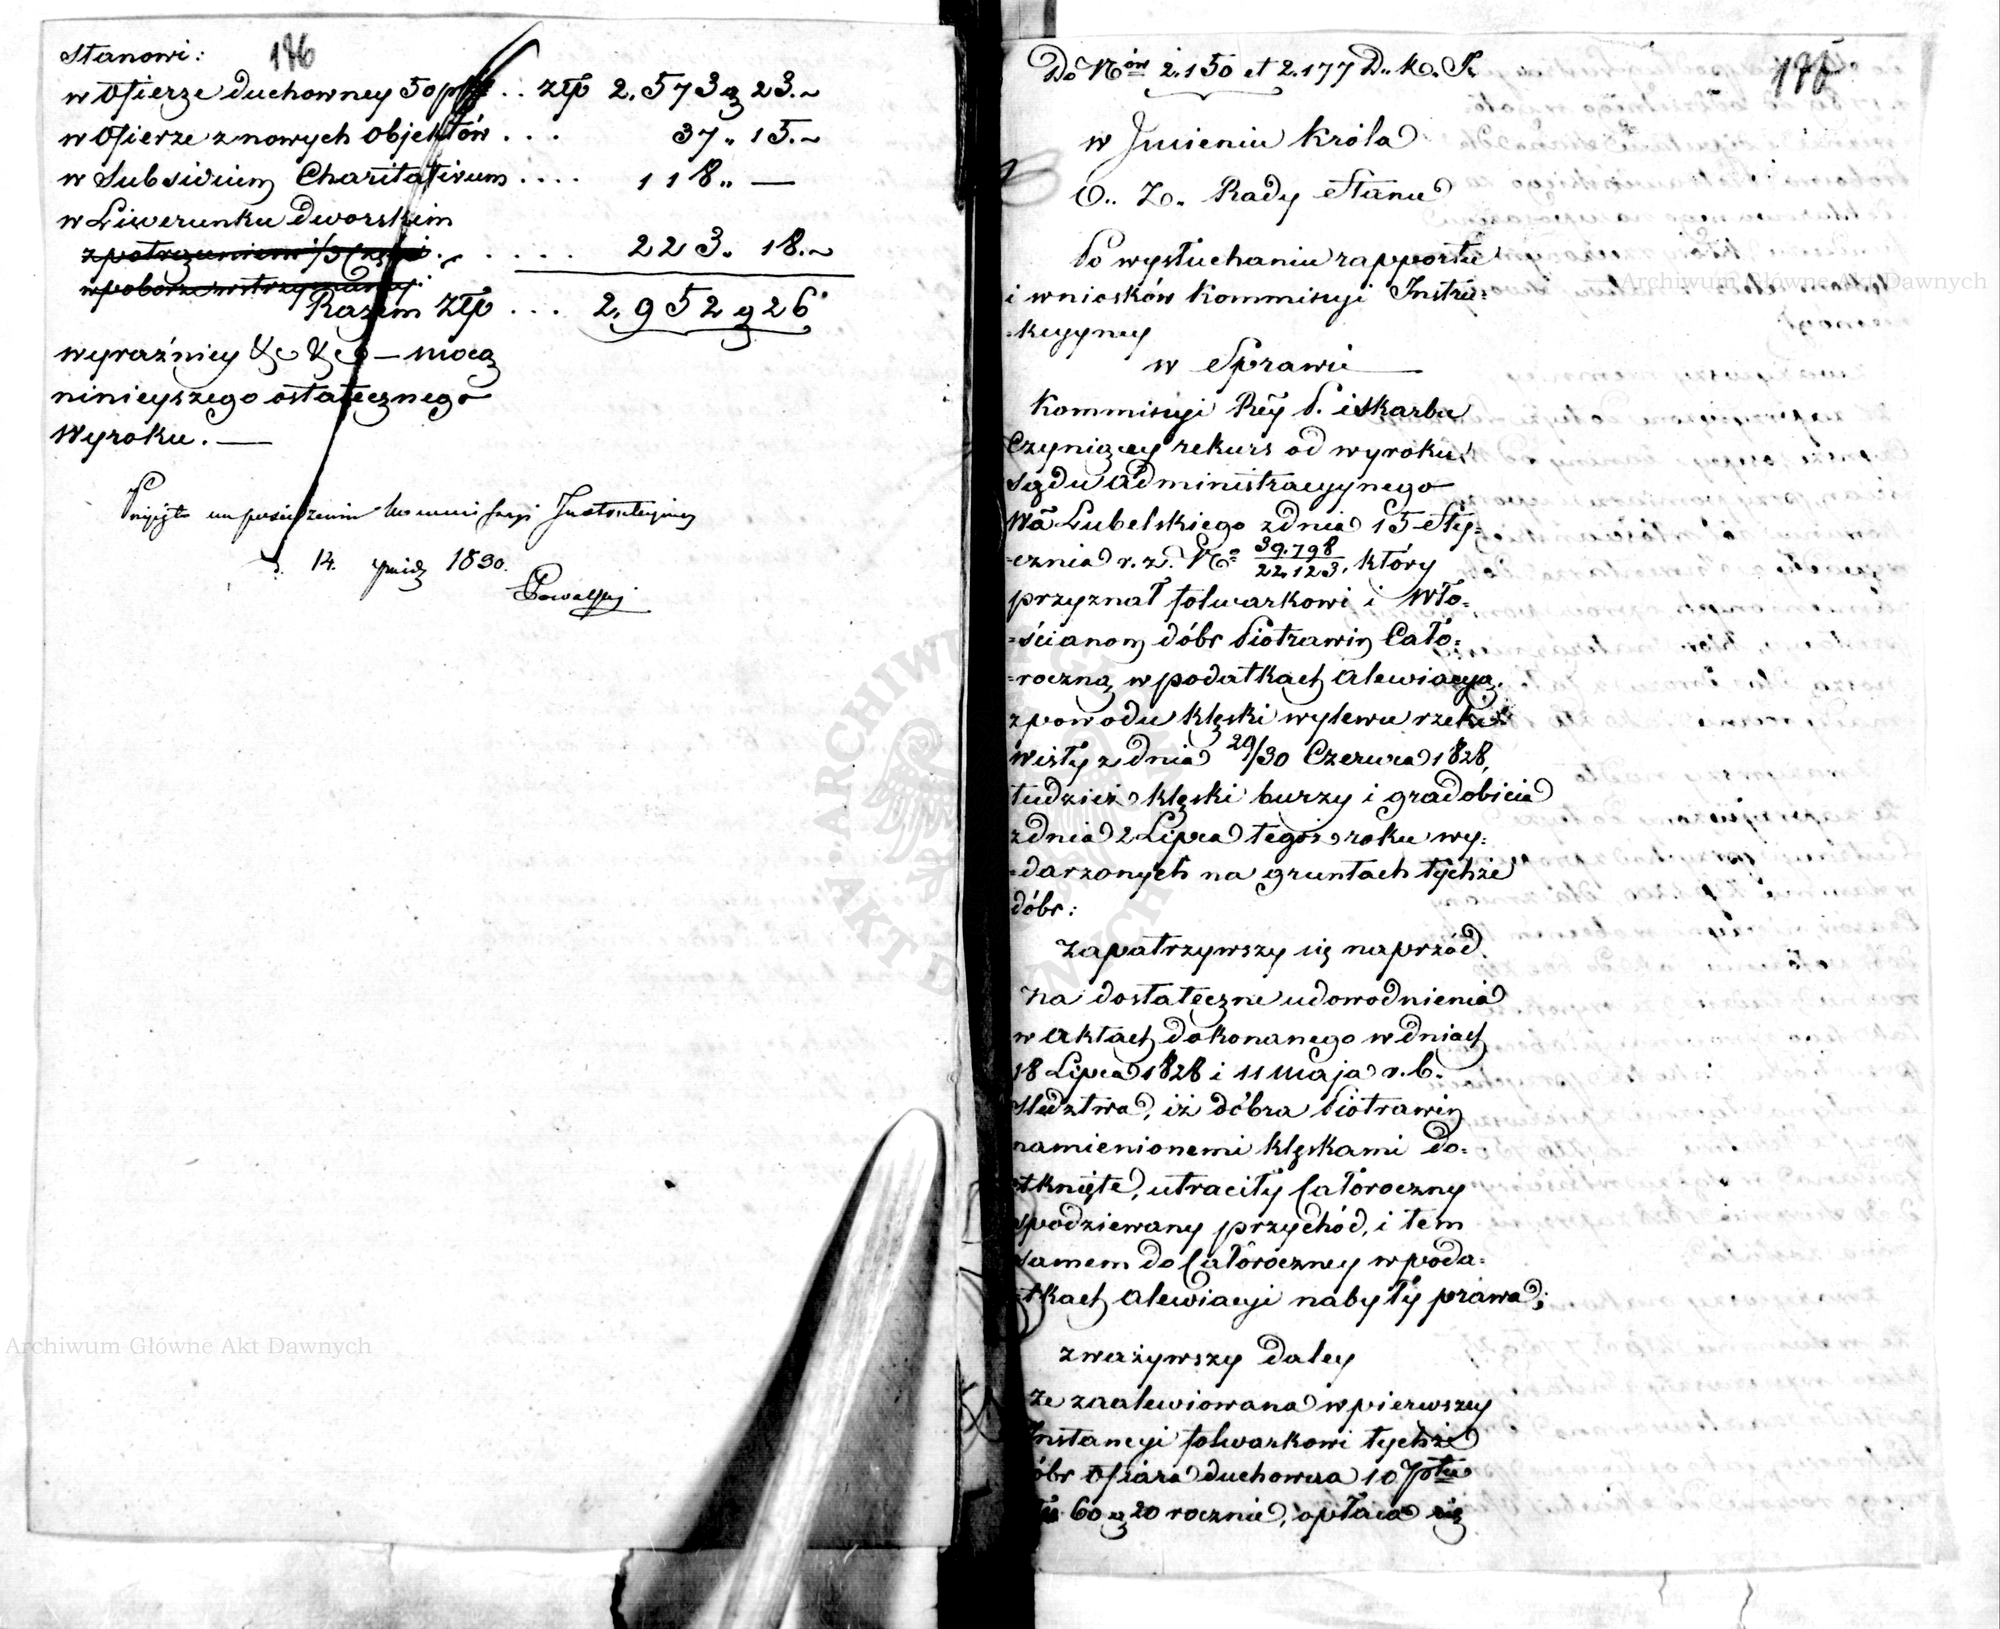 186
Stanowi:
w Ofierze duchowney 50 p . . złp 2.573 g 23.~
w Ofierze z nowych Objektów . . . 37 „ 15.~
w Subsidium Charitativum . . . . 118 „ —
w Liwerunku dworskim
z potrąceniem 1/3 Części . . . . . . 223 „ 18.~
w poborze wstrzymaney
Razem Złp . . . 2.952 g 26
wyraźniey &c &c — mocą
ninieyszego ostatecznego
Wyroku. —
Przyięto na posiedzeniu Kommissyi Instrukcyiney
d. 14. 1830.
Archiwum Główne Akt Dawnych
Do Nrów 2.150 et 2.177 D. K. I.
w Jmieniu Króla
O. Z. Rady Stanu
Po wysłuchaniu rapportu
i wniosków Kommissyi Instru=
=kcyyney
w Sprawie
Kommissyi Rz. P. i Skarbu
Czyniącey rekurs od wyroku
Sądu Administracyynego
Wa Lubelskiego z dnia 15 Sty=
=cznia r. z. No 39.798/22.123. który
przyznał folwarkowi i Wło=
=ścianom dóbr Piotrawin Cało=
=roczną w podatkach alewiacyą
z powodu klęski wylewu rzeki
Wisły z dnia 29/30 Czerwca 1828,
tudzież klęski burzy i gradobicia
z dnia 2 Lipca tegoż roku wy=
=darzonych na gruntach tychże
dóbr:
Zapatrzywszy się naprzód
na dostateczne udowodnienia
w aktach dokonanego w dniach
18 Lipca 1828 i 11 Maja r. b.
Śledztwa, iż dobra Piotrawin
namienionemi klęskami do=
=tknięte, utraciły Całoroczny
spodziewany przychód, i tem
samem do Całoroczney w poda=
=tkach alewiacyi nabyły prawa;
zważywszy daley
że zaalewiowana w pierwszey
Instancyi folwarkowi tychże
dóbr Ofiara duchowna 10
60 g 20 rocznie, opłaca się
Archiwum Główne Akt Dawnych
ARCHIWUM GŁÓWNE AKT DAWNYCH